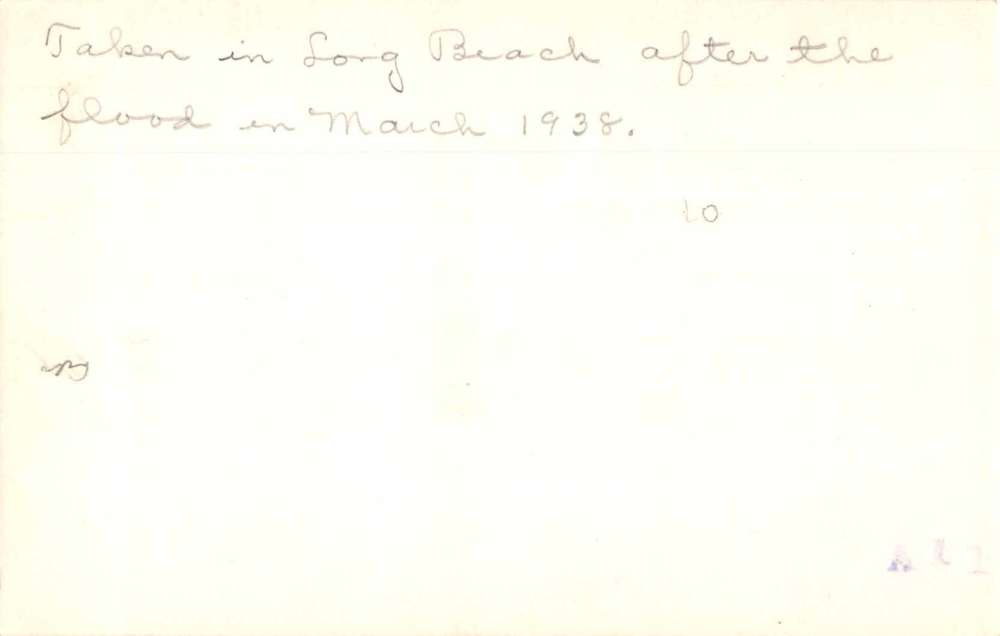 Taken in Long Beach after the
flood in March 1938.
10